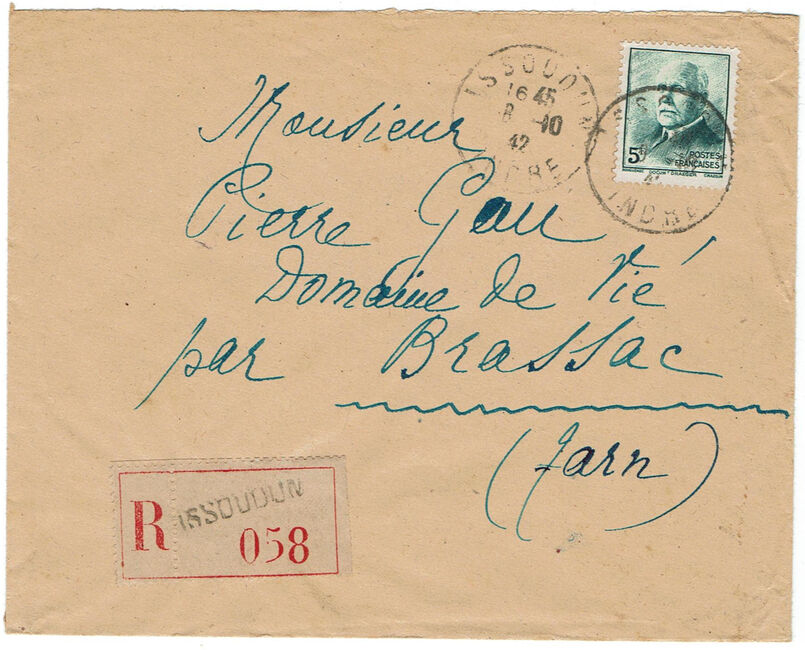 ISSOUDUN
16 45
8 -10
42
INDRE
5F
POSTES
FRANÇAISES
INDRE
Monsieur
Pierre Gau
Domaine de Vié
par Brassac
(Tarn)
R
ISSOUDUN
058